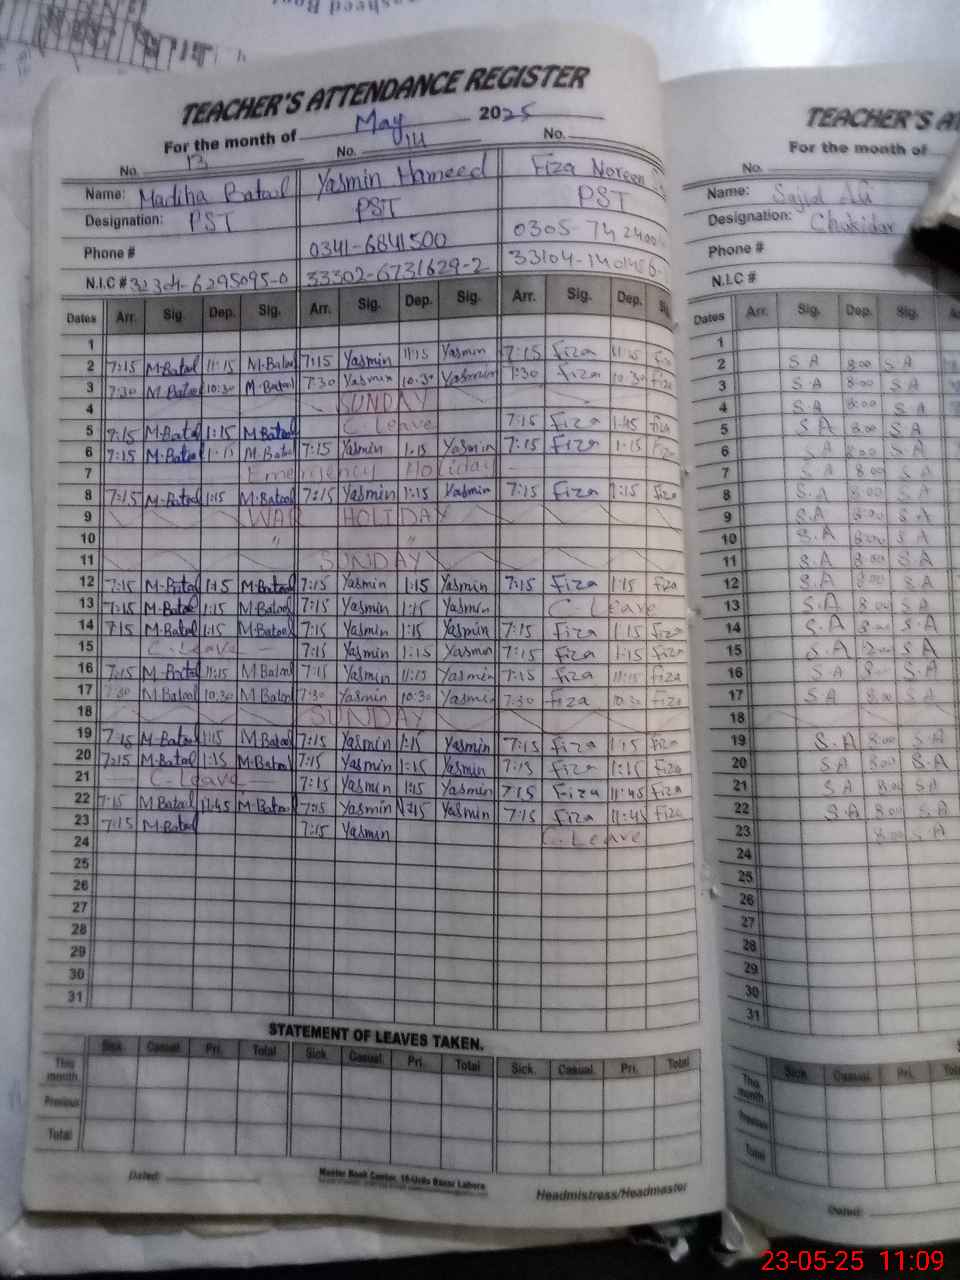 TEACHER'S ATTENDANCE REGISTER
For the month of May 2025
No. 13 No. 14 No.
Name: Madiha Batool Yasmin Hameed Fiza Noreen
Designation: PST PST PST
Phone # 0341-6841500 0305-742400
N.I.C # 32304-6295095-0 33302-6731629-2 33104-1401456-
Dates Arr. Sig. Dep. Sig. Arr. Sig. Dep. Sig. Arr. Sig. Dep. Si
1
2 7:15 M.Batool 11:15 M.Batool 7:15 Yasmin 11:15 Yasmin 7:15 Fiza 11:15 Fiza
3 7:30 M.Batool 10:30 M.Batool 7:30 Yasmin 10:30 Yasmin 7:30 Fiza 10:30 Fiza
4 SUNDAY
5 7:15 M.Batool 1:15 M.Batool C.Leave 7:15 Fiza 1:45 Fiza
6 7:15 M.Batool 1:15 M.Batool 7:15 Yasmin 1:15 Yasmin 7:15 Fiza 1:15 Fiza
7 Emergency Holiday
8 7:15 M.Batool 1:15 M.Batool 7:15 Yasmin 1:15 Yasmin 7:15 Fiza 1:15 Fiza
9 WAR HOLIDAY
10 " "
11 SUNDAY
12 7:15 M.Batool 1:15 M.Batool 7:15 Yasmin 1:15 Yasmin 7:15 Fiza 1:15 Fiza
13 7:15 M.Batool 1:15 M.Batool 7:15 Yasmin 1:15 Yasmin C-Leave
14 7:15 M.Batool 1:15 M.Batool 7:15 Yasmin 1:15 Yasmin 7:15 Fiza 1:15 Fiza
15 C.Leave 7:15 Yasmin 1:15 Yasmin 7:15 Fiza 1:15 Fiza
16 7:15 M.Batool 11:15 M.Batool 7:15 Yasmin 11:15 Yasmin 7:15 Fiza 11:15 Fiza
17 7:30 M.Batool 10:30 M.Batool 7:30 Yasmin 10:30 Yasmin 7:30 Fiza 10:30 Fiza
18 SUNDAY
19 7:15 M.Batool 1:15 M.Batool 7:15 Yasmin 1:15 Yasmin 7:15 Fiza 1:15 Fiza
20 7:15 M.Batool 1:15 M.Batool 7:15 Yasmin 1:15 Yasmin 7:15 Fiza 1:15 Fiza
21 C.Leave 7:15 Yasmin 1:15 Yasmin 7:15 Fiza 11:45 Fiza
22 7:15 M.Batool 11:45 M.Batool 7:15 Yasmin Yasmin 7:15 Fiza 11:45 Fiza
23 7:15 M.Batool 7:15 Yasmin C.Leave
24
25
26
27
28
29
30
31
STATEMENT OF LEAVES TAKEN.
Sick. Casual. Pri. Total Sick. Casual. Pri. Total Sick. Casual. Pri. Total
This month
Previous
Total
Dated:
Master Book Center, 16-Urdu Bazar Lahore
Headmistress/Headmaster
TEACHER'S AT
For the month of
No.
Name: Sajjad Ali
Designation: Chokidar
Phone #
N.I.C #
Dates Arr. Sig. Dep. Sig.
1
2 S.A 8:00 S.A
3 S.A 8:00 S.A
4 S.A 8:00 S.A
5 S.A 8:00 S.A
6 S.A 8:00 S.A
7 S.A 8:00 S.A
8 S.A 8:00 S.A
9 S.A 8:00 S.A
10 S.A 8:00 S.A
11 S.A 8:00 S.A
12 S.A 8:00 S.A
13 S.A 8:00 S.A
14 S.A 8:00 S.A
15 S.A S.A
16 S.A S.A
17 S.A 8:00 S.A
18
19 S.A 8:00 S.A
20 S.A 8:00 S.A
21 S.A 8:00 S.A
22 S.A 8:00 S.A
23 8:00 S.A
24
25
26
27
28
29
30
31
Sick. Casual. Pri. Tot
This month
Previous
Total
Dated:
23-05-25 11:09